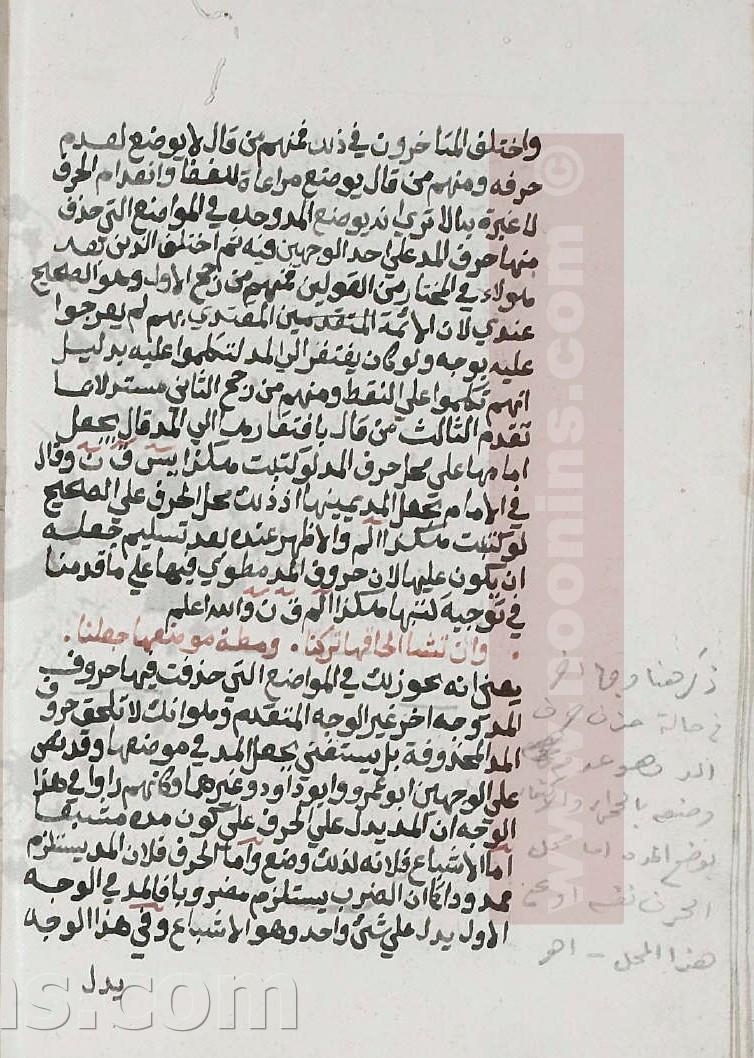 واختلف المتاخرون في ذلك فمنهم من قال لا يوضع لعدم
حرفه ومنهم من قال يوضع مراعاة للفظ وانعدام الحرف
لا عبرة به الا ترى انه يوضع المد وحده في المواضع التي حذف
منها حرف المد على احد الوجهين فيه ثم اختلف الذين بعد
هولاء في المختار من القولين فمنهم من رجح الاول وهو الصحيح
عندي لان الائمة المتقدمين المقتدي بهم لم يعرجوا
عليه بوجه ولو كان يفتقر الى المد لتكلموا عليه بدليل
انهم تكلموا على النقط ومنهم من رجح الثاني مستدلا بما
تقدم الثالث من قال بافتقارها الى المد قال يجعل
امامها على محل حرف المد لو كتبت هكذا يس ق ن وقال
في الامام يجعل المد يمينها اذ ذلك محل الحرف على الصحيح
لو كتبت هكذا الم والاظهر عنده بعد تسليم جعله
ان يكون عليها لان حروف المد مطوي فيها على ما قدمنا
في توجيه كتبها هكذا الم ق ن والله اعلم
وان تشا الحاقها تركتا ومطة موضعها جعلتا
يعني انه يجوز لك في المواضع التي حذفت فيها حروف
المد وجه اخر غير الوجه المتقدم وهو انك لا تلحق حروف
المد المحذوفة بل يستغني بجعل المد في موضعها وقد نص
على الوجهين ابو عمرو وابو داود وغيرهما وكانهم راوا في هذا
الوجه ان المد يدل على الحرف على كون مده مشبعا
اما الاشباع فلانه لذلك وضع واما الحرف فلان المد يستلزم
ممدودا كما ان الضرب يستلزم مضروبا فالمد في الوجه
الاول يدل على شئ واحد وهو الاشباع وفي هذا الوجه
يدل
ذكر هنا
في حالة حذف حرف
المد وهو عدم
وضعه بالحمراء
بوضع المد
الحرف نفسه او
هذا المحل - اهـ
www.noonins.com ©
ns.com